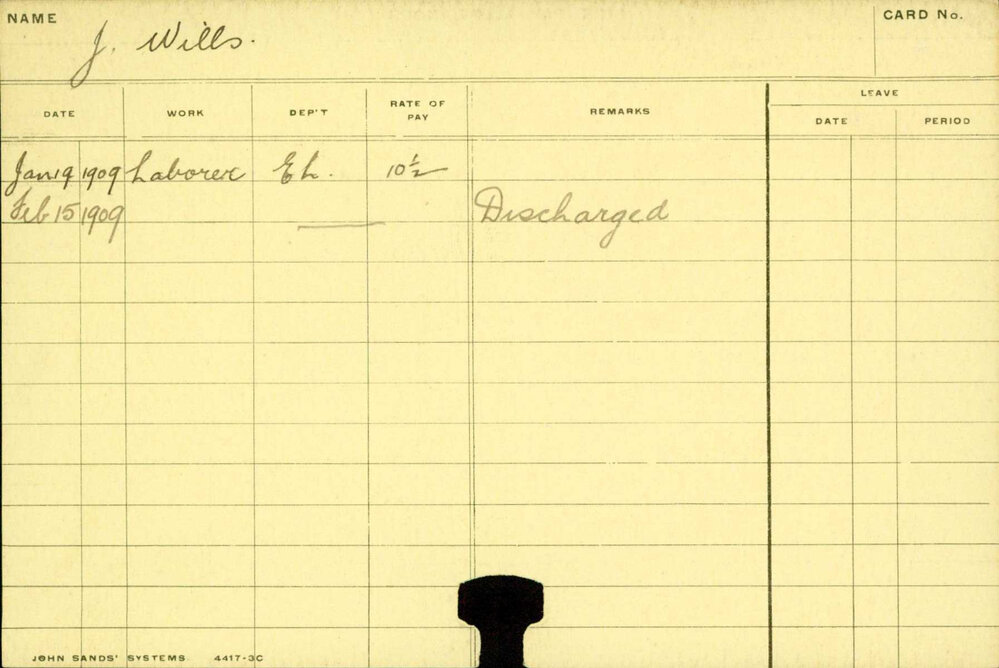 NAME J. Wills.
CARD No.
DATE WORK DEP'T RATE OF PAY REMARKS LEAVE
DATE PERIOD
Jan 19 1909 Laborer Eh. 10 1/2
Feb 15 1909 Discharged
JOHN SANDS' SYSTEMS 4417-3C